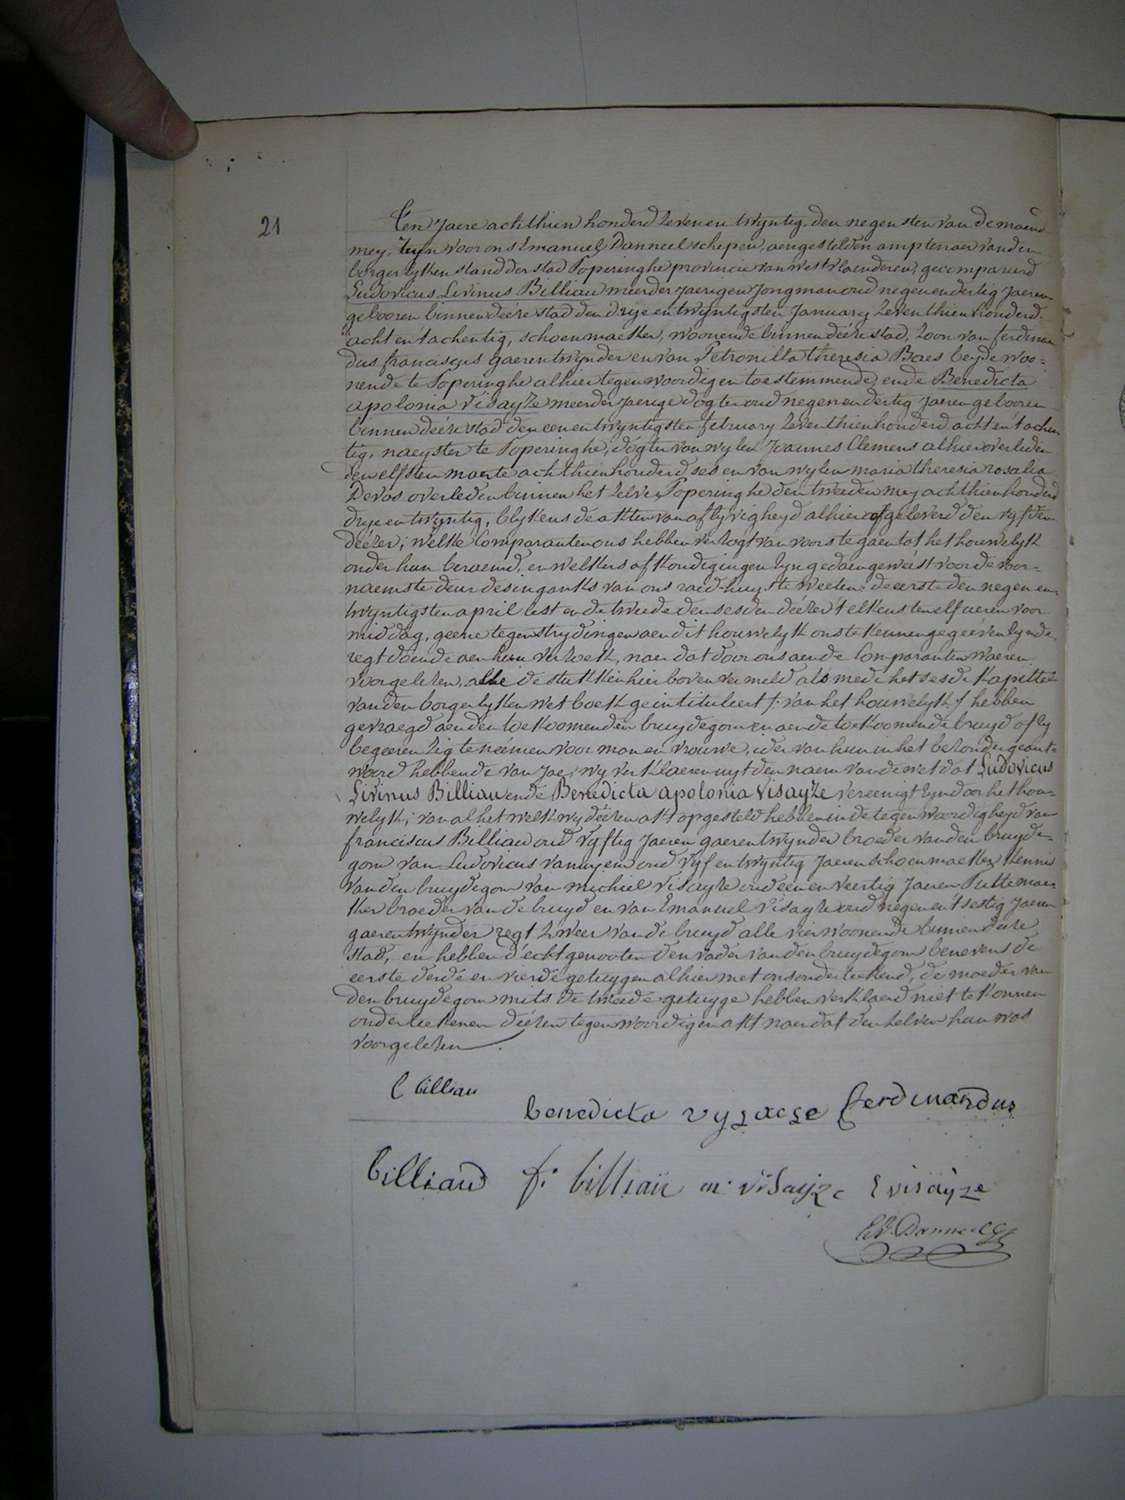 21
Ten jaere achthien honderd zeven en twyntig, den negensten van de maend
mey, zyn voor ons Emanuel Danneel schepen, aengestelden amptenaer van den
borgerlyken stand der stad Poperinghe provincie van west vlaenderen, gecompareerd
Ludovicus Livinus Billiau meerderjaerigen jongman oud negenendertig jaeren
gebooren binnen deeze stad den dryeentwyntigsten January zeventhienhonderd
acht en tachentig, schoenmaeker, woonende binnen deeze stad, zoon van ferdinan
dus franciscus gaerentwynder en van Petronilla theresia Baes beyde woo-
nende te Poperinghe alhier tegenwoordig en toestemmende, ende Benedicta
apolonia Visayze meerderjaerige dogter oud negenendertig jaeren gebooren
binnen deeze stad den eenentwyntigsten february zeventhienhonderd acht en tachen
tig, naeyster te Poperinghe, dogter van wylen Joannes Clemens alhier overleden
den elfsten maerte achthienhonderd ses en van wylen maria theresia rosalia
Devos overleden binnen het zelve Poperinghe den tweeden mey achthienhonderd
drye en twyntig, blykens de akten van aflyvigheyd alhier afgeleverd den vyfden
deezer; welke Comparanten ons hebben verzogt van voorts te gaen tot het houwelyk
onder hun beraemd, en welkers afkondigingen zyn gedaen geweest voor de voor-
naemste deur des ingank's van ons raedhuys te weeten: de eerste den negen en
twyntigsten april lest en de tweede den sesden deezer telkens ten elf ueren voor
middag, geene tegenstrydingen aen dit houwelyk ons te kennen gegeeven zynde,
regt doende aen hun verzoek, naer dat door ons aen de Comparanten waeren
voorgelezen, alle de stukken hier boven vermeld als mede het sesde kapittel
van den borgerlyken wet boek geintituleert /: van het houwelyk :/ hebben
gevraegd aen den toekoomenden bruydegom en aen de toekoomende bruyd of zy
begeeren zig te neemen voor man en vrouwe, ider van hun in het bezonder geant
woord hebbende van Jae, wy verklaeren uyt den naem van de wet dat Ludovicus
Livinus Billiau ende Benedicta apolonia Visayze vereenigt zyn door het hou-
welyk; van al het welk wy deezen akt opgesteld hebben in de tegenwoordigheyd van
franciscus Billiau oud vyftig jaeren gaerentwynder broeder van den bruyde-
gom van Ludovicus oud vyfentwyntig jaeren schoenmaeker kennis
van den bruydegom van michiel Visayze oud eenenveertig jaeren Puttemae-
ker broeder van de bruyd en van Emanuel Visayze oud negenen'tsestig jaeren
gaerentwynder regt zweer van de bruyd alle vier woonende binnen deeze
stad, en hebben d'echtgenooten den vader van den bruydegom benevens de
eerste derde en vierde getuygen alhier met ons onderteekend, de moeder van
den bruydegom mits de tweede getuyge hebben verklaerd niet te konnen
onderteekenen deezen tegenwoordigen akt naer dat den zelven hun was
voorgelezen.
L billiau
benedicta vyzaeze ferdinandus
billiaud f: billiaü m: visayze E visayze
Ed. Danneel